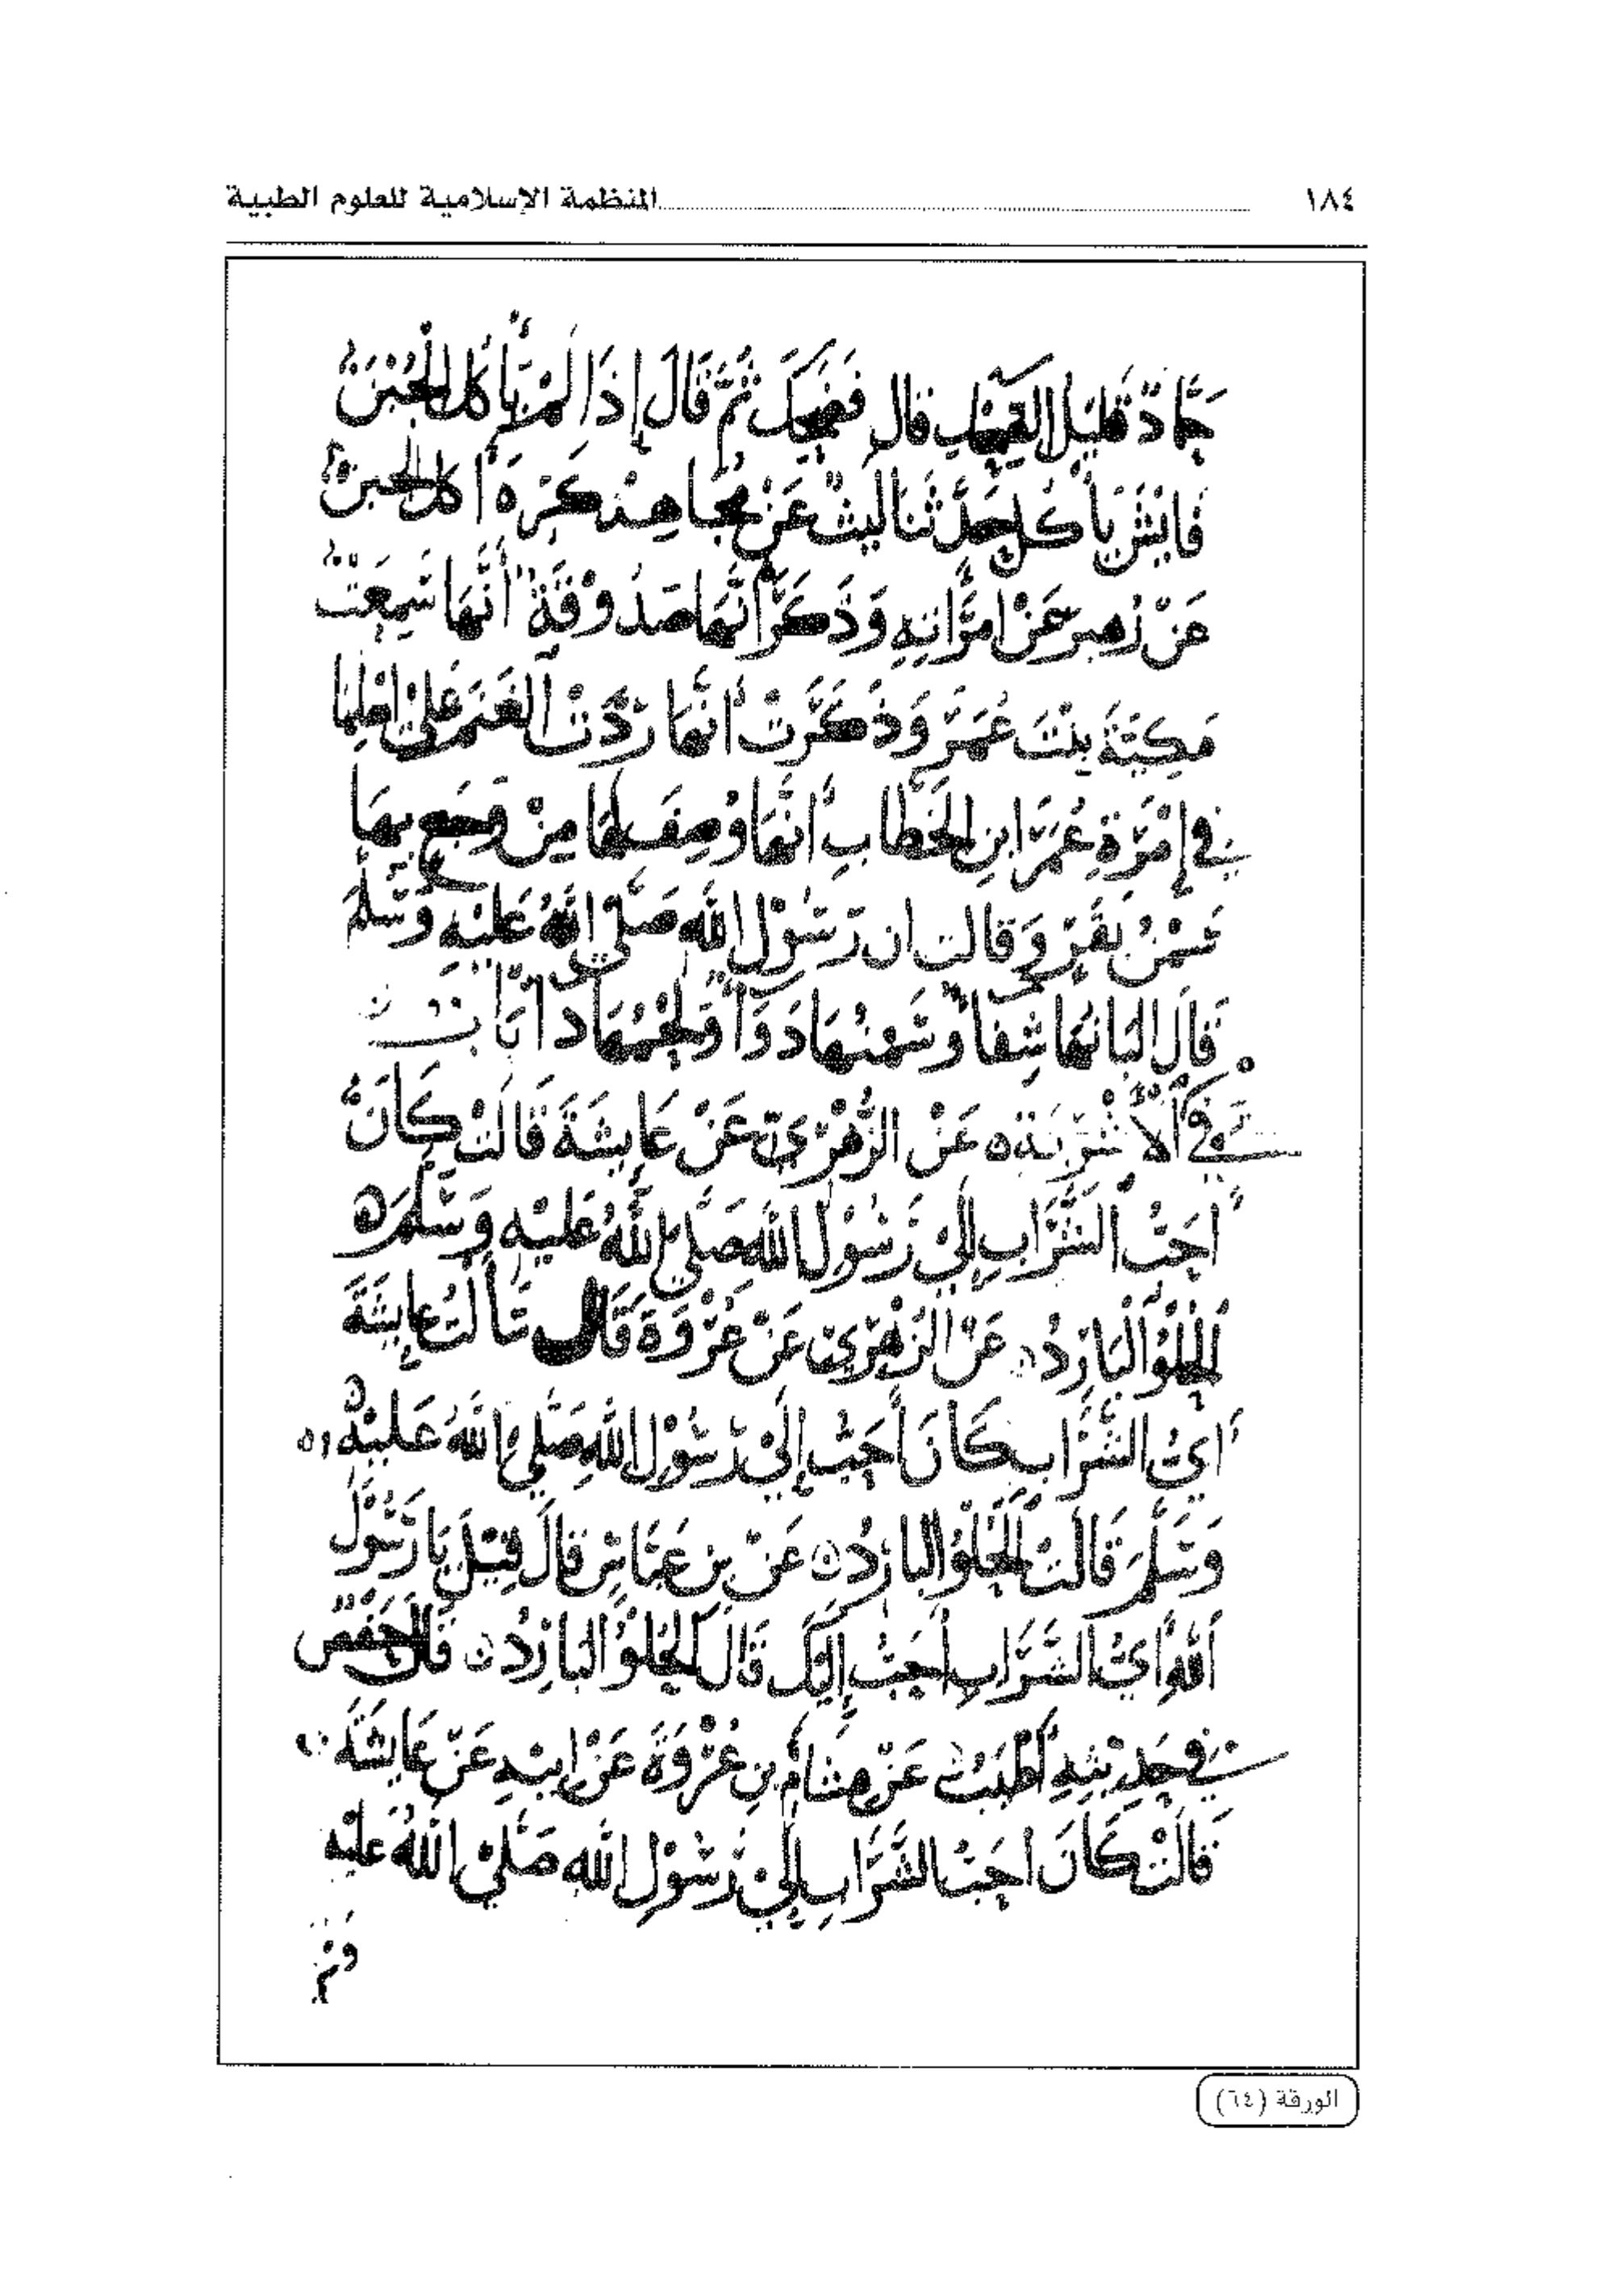 ١٨٤ المنظمة الإسلامية للعلوم الطبية
حماد قليل قال فضحك ثم قال إذا لم يأكل الجبن
يأكل حدثنا ليث عن مجاهد كره أكل الجبن
عن زهير عن امرأته وذكر أنها صدوقة أنها سمعت
مليكة بنت عمر وذكرت أنها ردت الغنم على أهلها
في إمرة عمر ابن الخطاب أنها وصف لها من وجع بها
سمن بقر وقالت ان رسول الله صلى الله عليه وسلم
قال البانها شفا وسمنها دوا ولحمها دا باب
في الأشربة ه عن الزهري عن عايشة قالت كان
أحب الشراب إلى رسول الله صلى الله عليه وسلم ه
الحلو البارد ه عن الزهري عن عروة قال سألت عايشة
أي الشراب كان أحب إلى رسول الله صلى الله عليه
وسلم قالت الحلو البارد ه عن بن عباس قال قيل يا رسول
الله أي الشراب أحب إليك قال الحلو البارد ه قال حفص
في حديثه أطيب عن هشام بن عروة عن ابيه عن عايشة
قالت كان أحب الشراب إلى رسول الله صلى الله عليه
الورقة (٦٤)